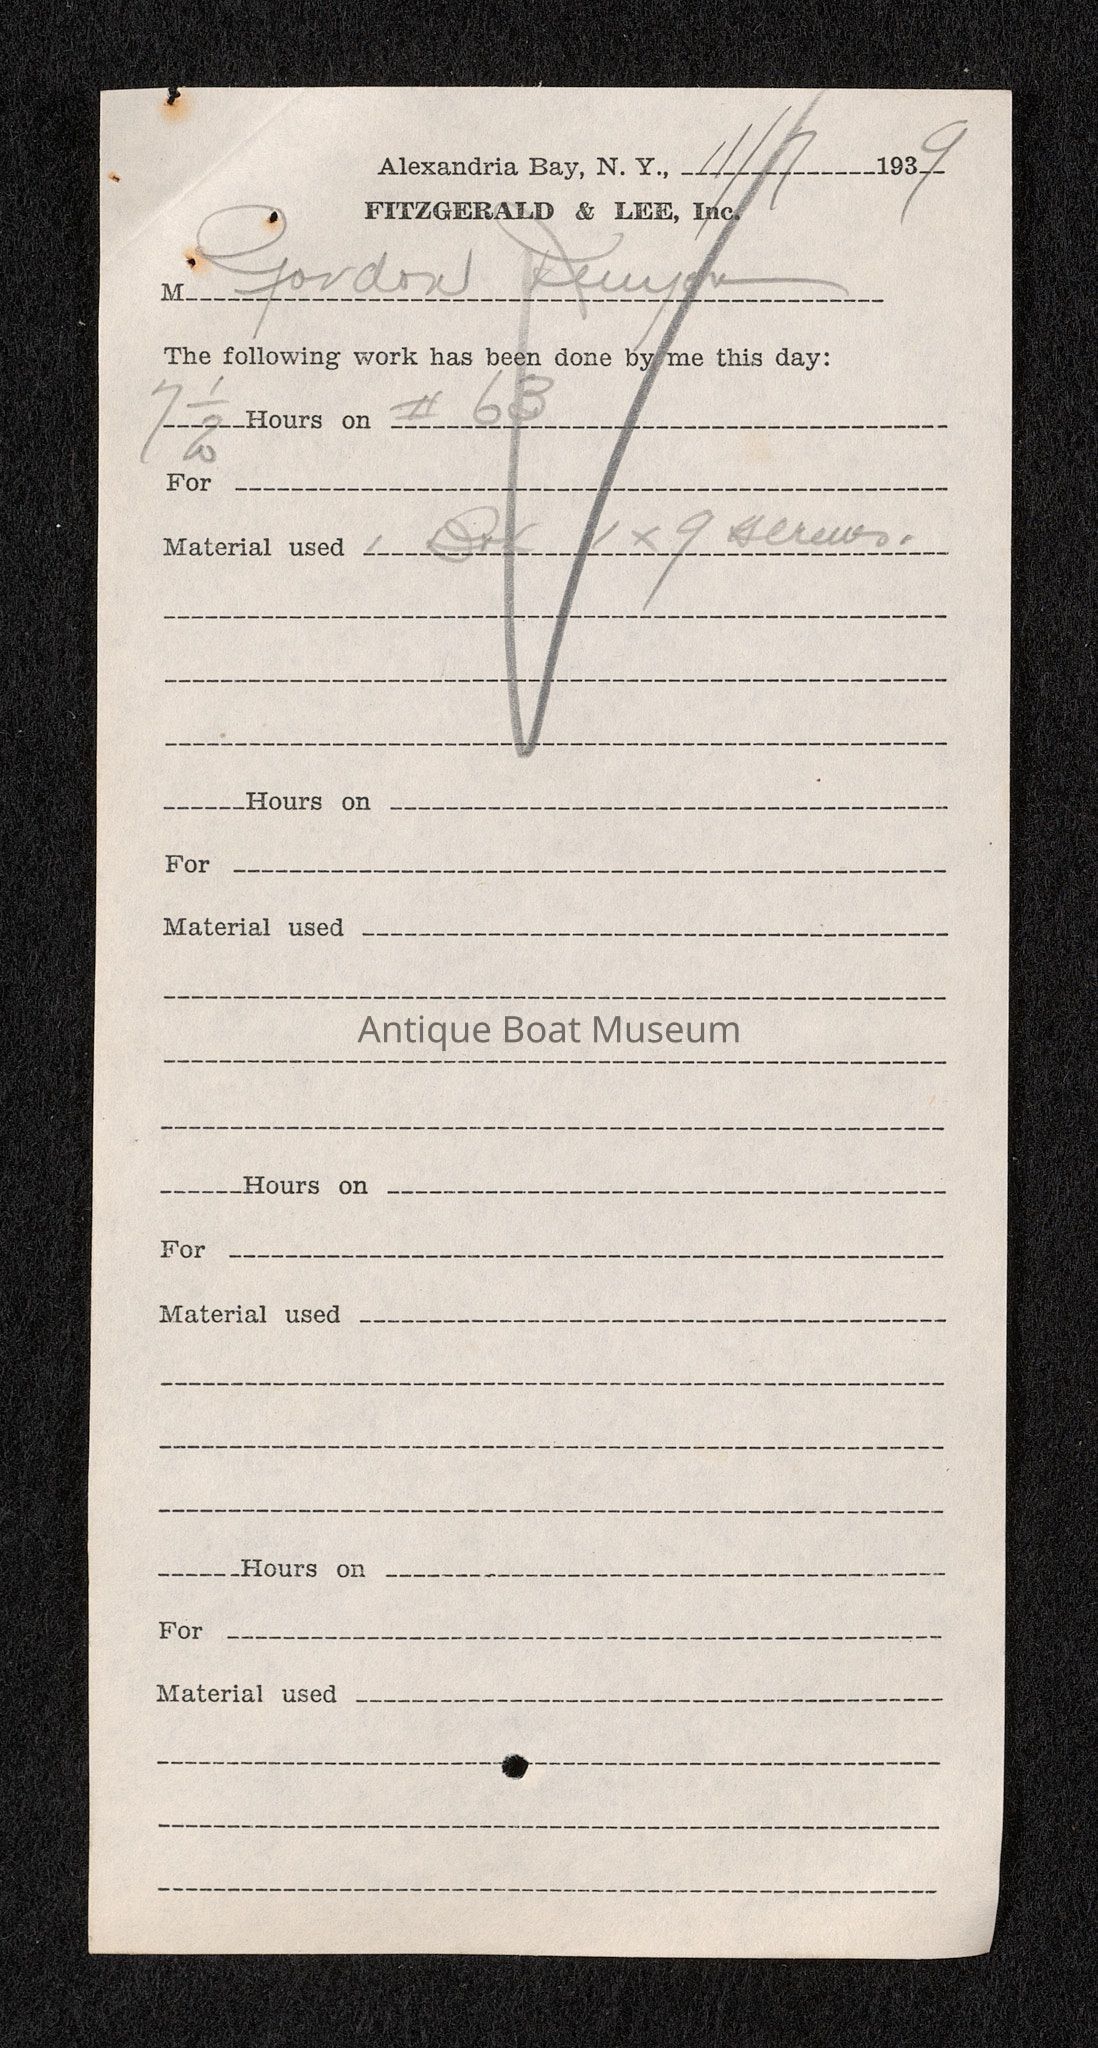 Alexandria Bay, N. Y., 11/7 1939
FITZGERALD & LEE, Inc.
M Gordon Kenyon
The following work has been done by me this day:
7 1/2 Hours on # 63
For
Material used 1 1 x 9 screws.
Hours on
For
Material used
Antique Boat Museum
Hours on
For
Material used
Hours on
For
Material used